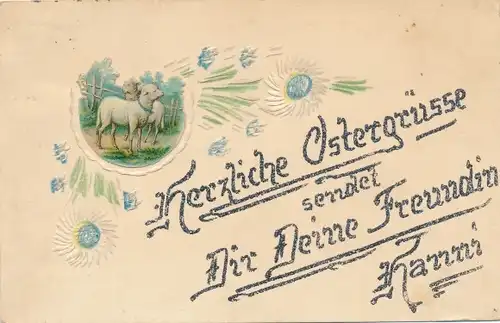 Herzliche Ostergrüsse
sendet
Dir Deine Freundin
Hanni